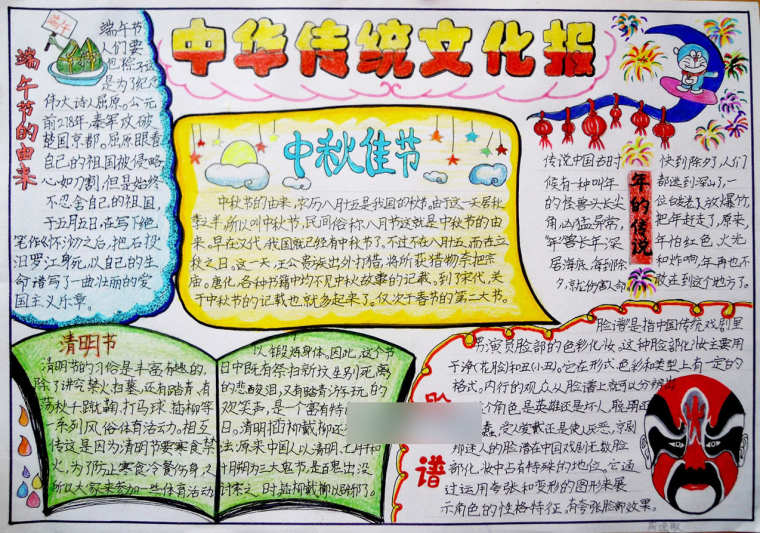 中华传统文化报
端午节的由来
端午
端午节
人们要
是为了纪
伟大诗人屈原。公元
前278年,秦军攻破
楚国京都。屈原眼看
自己的祖国被侵略
心如刀割,但是始终
不忍舍自己的祖国,
于五月五日,在写下绝
笔作《怀沙》之后,抱石投
汨罗江身死,以自己的生
命谱写了一曲壮丽的爱
国主义乐章。
中秋佳节
中秋节的由来,农历八月十五是我国的中秋节。由于这一天居秋
季之半,所以叫中秋节,民间俗称八月节这就是中秋节的由
来。早在汉代,我国就已经有中秋节了,不过不在八月十五,而在立
秋之日。这一天,王公贵族出外打猎,将所获猎物奉把宗
庙。唐化,各种书籍中均不见中秋故事的记载。到了宋代,关
于中秋节的记载也就多起来了。仅次于春节的第二大节。
年的传说
传说中国古时
候有一种叫年
的怪兽头长尖
角凶猛异常,
年兽长年深
居海底,每到除
夕,就伤害人命
快到除夕,人们
都逃到深山了,一
位老
把年赶走了,原来,
年怕红色,火光
和炸响,年再也不
敢在到这个地方了。
清明节
清明节的习俗是丰富有趣的,
除了讲究禁火扫墓,还有踏青,有
荡秋千,蹴鞠,打马球,插柳等
一系列风俗体育活动。相互
传这是因为清明节要寒食禁
火,为了防止寒食冷餐伤身,人
所以大家来参加一些体育活动
以锻炼身体,因此,这个节
日中既有祭扫新坟生别死离
的悲酸泪,又有踏青游玩的
欢笑声,是一个富有特
日。清明插柳戴柳还
法:原来中国人以清明,七月半和
十月朔为三大鬼节,是百鬼出没
讨索之,时,插柳戴柳以辟邪了。
脸谱
脸谱"是指中国传统戏剧里
男演员脸部的色彩化妆,这种脸部化妆主要用
于净(花脸)和丑(小丑)。它在形式,色彩和类型上有一定的
格式,内行的观众从脸谱上就可以分辨出
个角色,是英雄还是坏人,聪明还
蠢,受人爱戴还是使人厌恶,京剧
那迷人的脸谱在中国戏剧无数脸
部化妆中占有特殊的地位。它通
过运用夸张和变形的图形来展
示角色的性格特征,有夸张脸部效果。